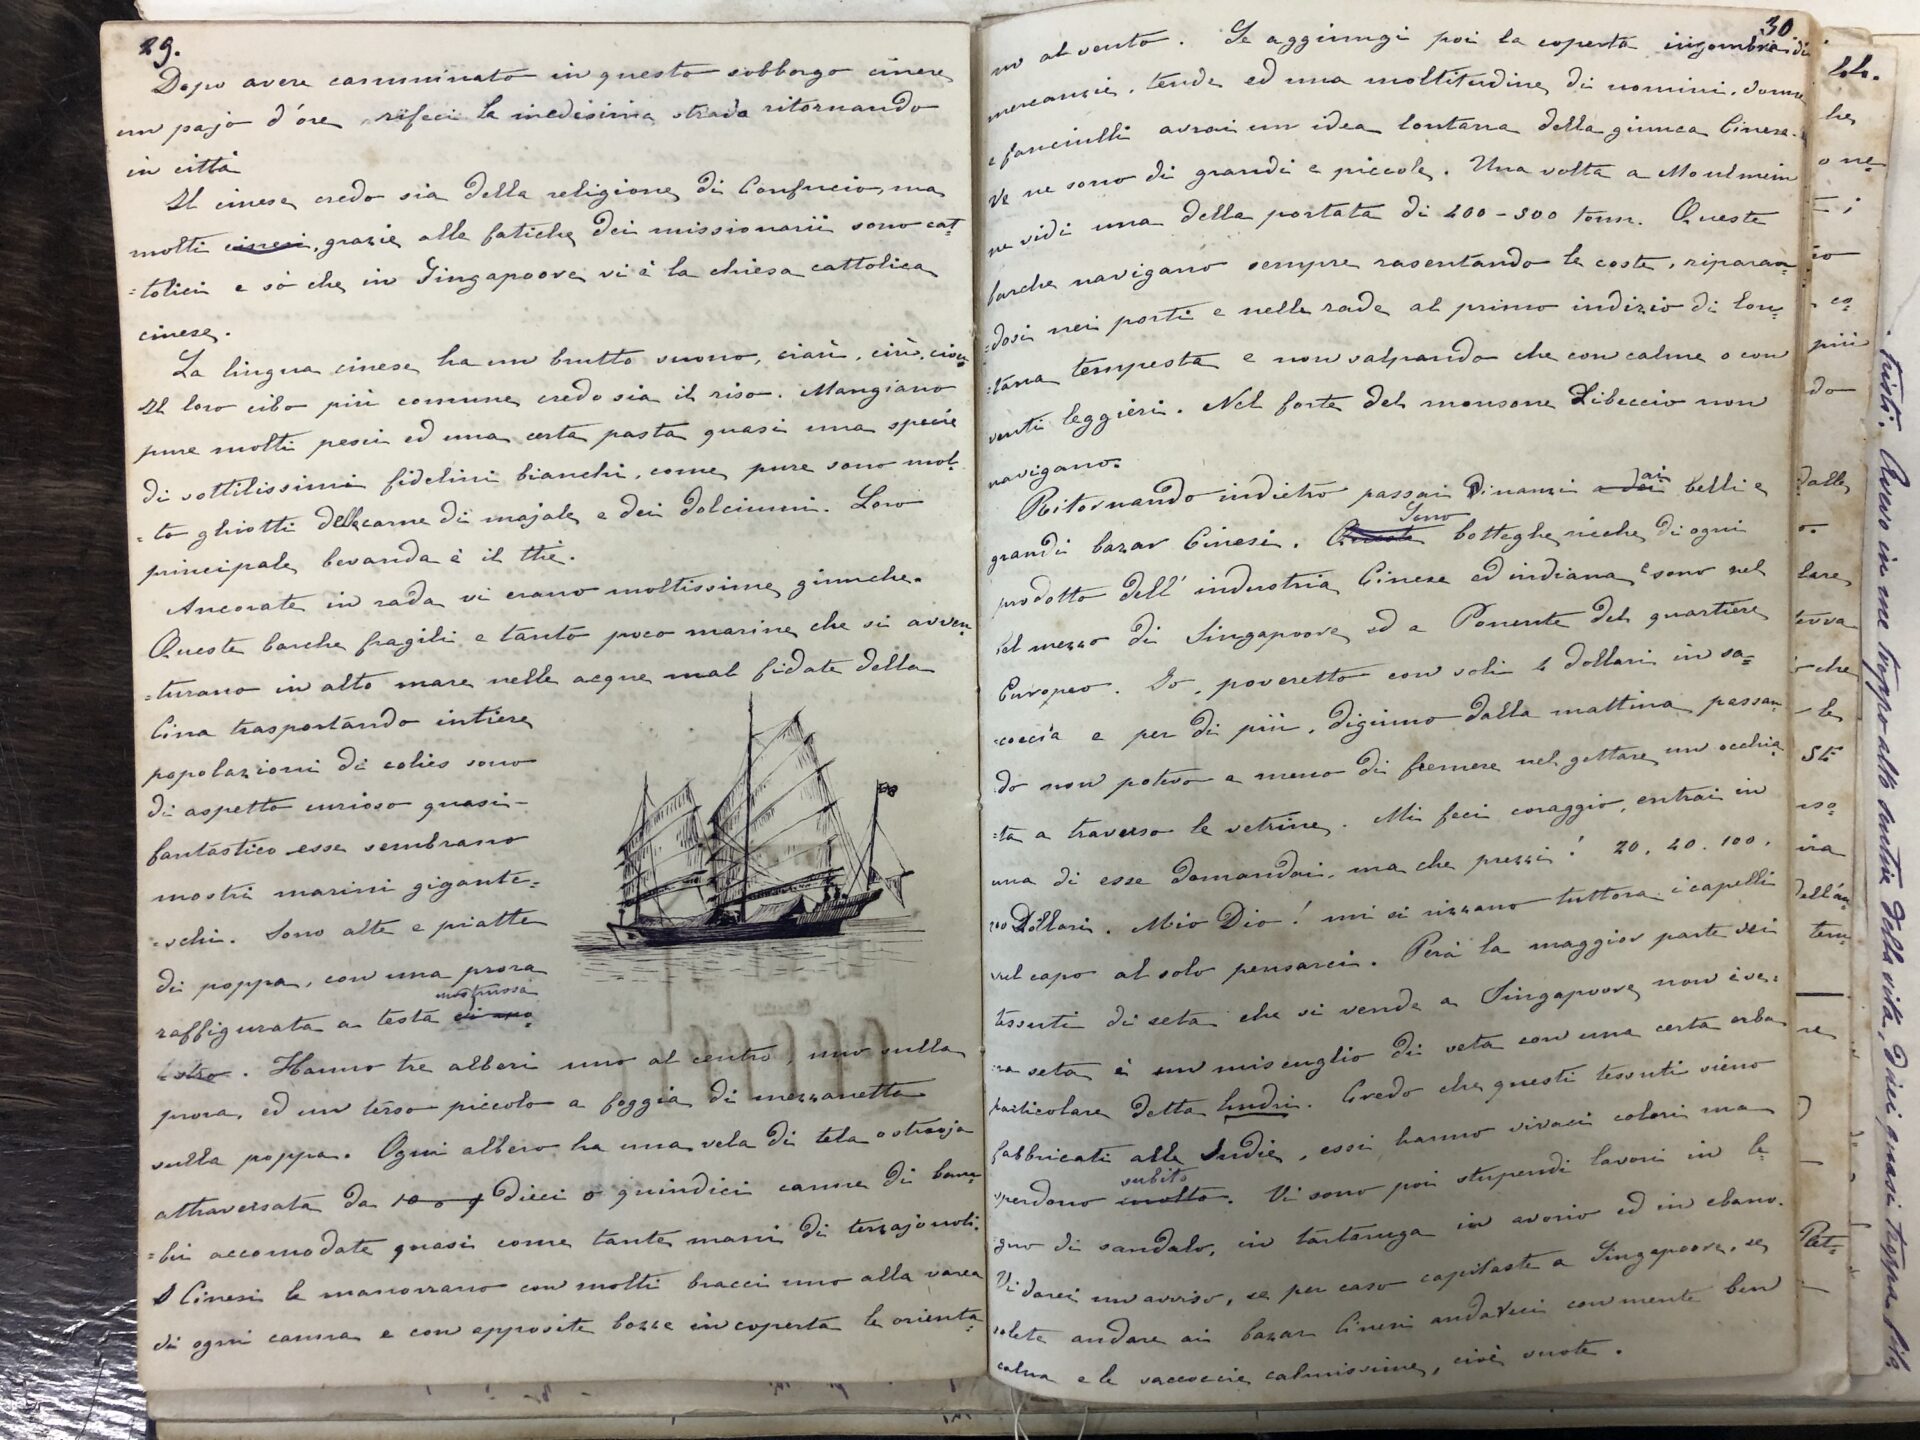 29.
Dopo avere camminato in questo sobborgo cinese
un pajo d'ore rifeci la medesima strada ritornando
in città
Il cinese credo sia della religione di Confucio, ma
molti cinesi, grazie alle fatiche dei missionarii sono cat-
=tolici e so che in Singapoore vi è la chiesa cattolica
cinese.
La lingua cinese ha un brutto suono, ciaù, ciù,
Il loro cibo più comune credo sia il riso. Mangiano
pure molti pesci ed una certa pasta quasi una specie
di sottilissimi fidelini bianchi, come pure sono mol-
=to ghiotti della carne di majale e dei dolciumi. Loro
principale bevanda è il thè.
Ancorate in rada vi erano moltissime giunche.
Queste barche fragili e tanto poco marine che si avven=
=turano in alto mare nelle acque mal fidate della
Cina trasportando intiere
popolazioni di colies sono
di aspetto curioso quasi-
fantastico esse sembrano
mostri marini gigante=
=schi. Sono alte e piatte
di poppa, con una prora
raffigurata a testa mostruosa
. Hanno tre alberi uno al centro, uno sulla
prora, ed un terso piccolo a foggia di mezzanetta
sulla poppa. Ogni albero ha una vela di tela o stuoja
attraversata da dieci o quindici canne di bam=
=bù accomodate quasi come tante mani di terzajuoli.
I Cinesi le manovrano con molti bracci uno alla varea
di ogni canna e con apposite bozze in coperta le orienta=
30
no al vento. Se aggiungi poi la coperta ingombra di
mercanzie, tende ed una moltitudine di uomini, donne
e fanciulli avrai un idea lontana della giunca Cinese.
Ve ne sono di grandi e piccole. Una volta a Moulmein
ne vidi una della portata di 400-500 tonn. Queste
barche navigano sempre rasentando le coste, riparan=
=dosi nei porti e nelle rade al primo indizio di lon=
=tana tempesta e non salpando che con calme o con
venti leggieri. Nel forte del monsone Libeccio non
navigano.
Ritornando indietro passai dinanzi ai belli e
grandi bazar Cinesi. Sono botteghe ricche di ogni
prodotto dell'industria Cinese ed indiana e sono nel
bel mezzo di Singapoore ed a Ponente del quartiere
Europeo. Io, poveretto con soli 4 dollari in sa=
=coccia e per di più, digiuno dalla mattina passan=
do non potevo a meno di fremere nel gettare un occhia=
=ta a traverso le vetrine. Mi feci coraggio, entrai in
una di esse domandai, ma che prezzi! 20. 40. 100.
200 Dollari. Mio Dio! mi si rizzano tuttora i capelli
sul capo al solo pensarci. Però la maggior parte dei
tessuti di seta che si vende a Singapoore non è ve=
=ra seta è un miscuglio di seta con una certa erba
particolare detta . Credo che questi tessuti sieno
fabbricati alle Indie, essi hanno vivaci colori ma
sperdono subito. Vi sono poi stupendi lavori in le=
gno di sandalo, in tartaruga in avorio ed in ebano.
Vi darei un avviso, se per caso capitaste a Singapoore, se
volete andare ai bazar Cinesi andateci con mente ben
calma e le saccoccie calmissime, cioè vuote.